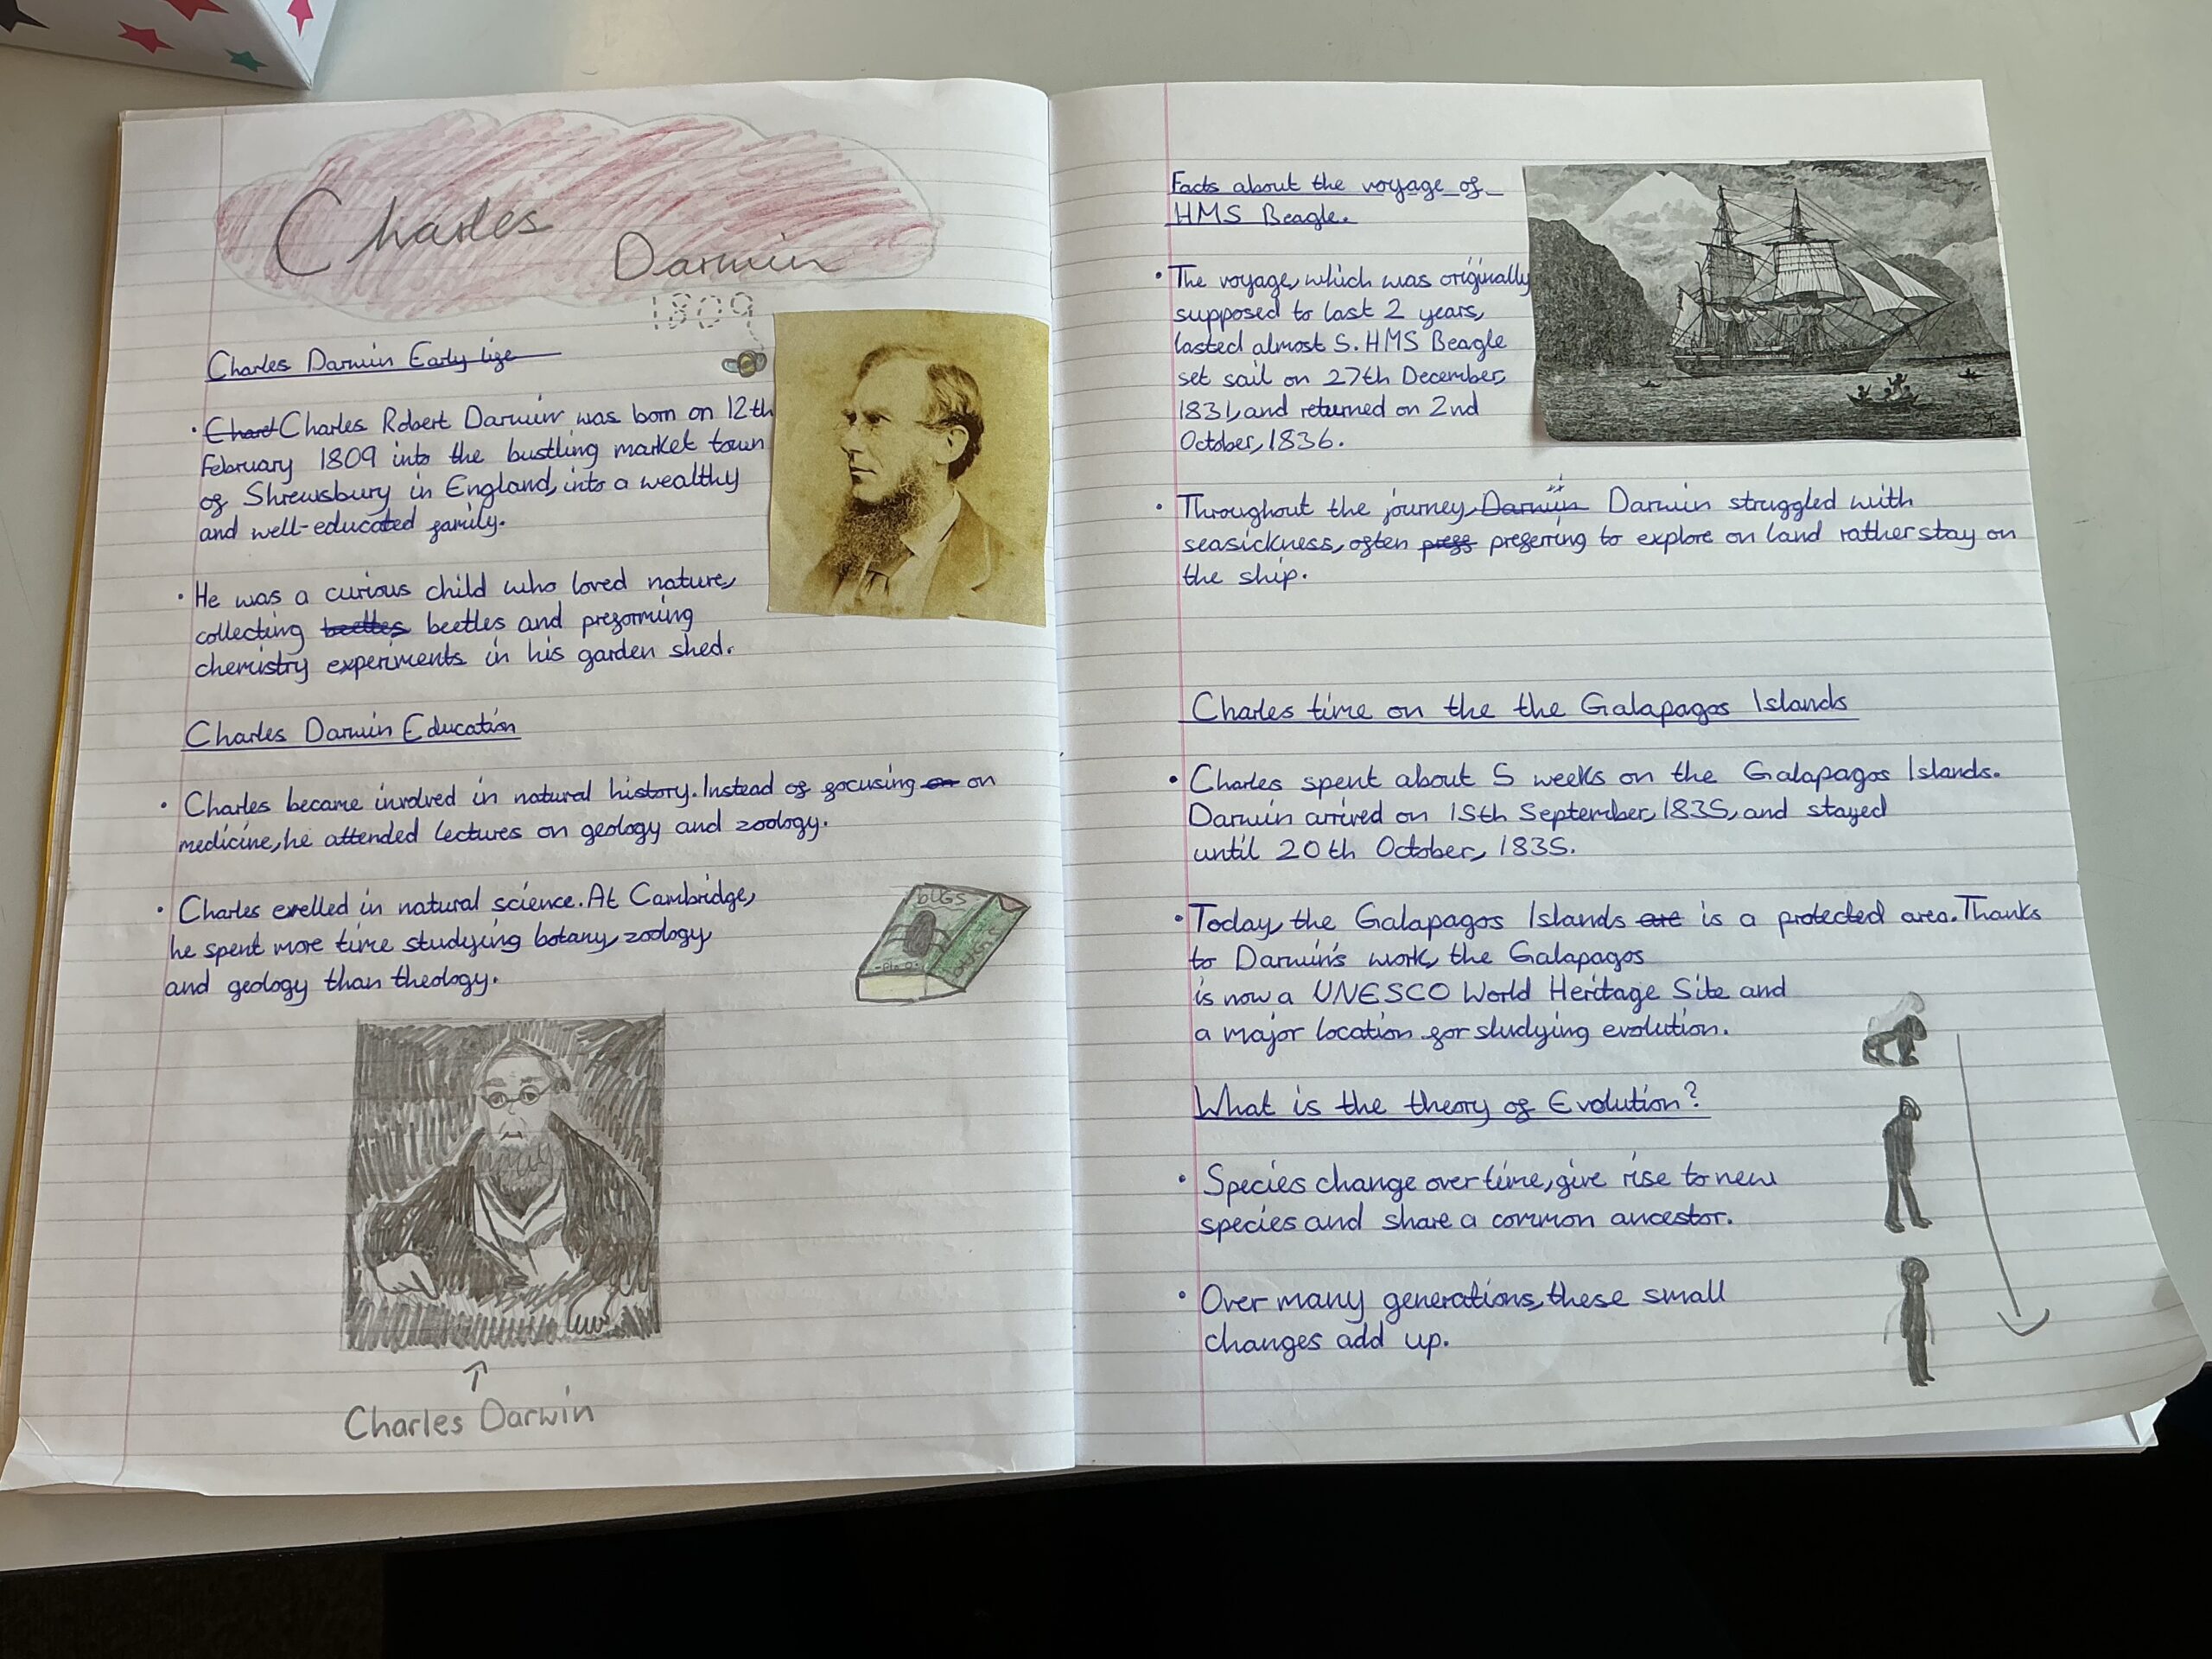 Charles
Darwin
1809
Charles Darwin Early life
Chart Charles Robert Darwin was born on 12th
February 1809 into the bustling market town
of Shrewsbury in England, into a wealthy
and well-educated family.
He was a curious child who loved nature,
collecting beetles beetles and preforming
chemistry experiments in his garden shed.
Charles Darwin Education
Charles became involved in natural history. Instead of focusing on on
medicine, he attended lectures on geology and zoology.
Charles exelled in natural science. At Cambridge,
he spent more time studying botany, zoology,
and geology than theology.
BUGS
Charles Darwin
Facts about the voyage of
HMS Beagle.
The voyage, which was originally
supposed to last 2 years,
lasted almost 5. HMS Beagle
set sail on 27th December,
1831, and returned on 2nd
October, 1836.
Throughout the journey, Darwin Darwin struggled with
seasickness, often preff preferring to explore on land rather stay on
the ship.
Charles time on the the Galapagos Islands
Charles spent about 5 weeks on the Galapagos Islands.
Darwin arrived on 15th September, 1835, and stayed
until 20th October, 1835.
Today, the Galapagos Islands are is a protected area. Thanks
to Darwin's work, the Galapagos
is now a UNESCO World Heritage Site and
a major location for studying evolution.
What is the theory of Evolution?
Species change over time, give rise to new
species and share a common ancestor.
Over many generations, these small
changes add up.